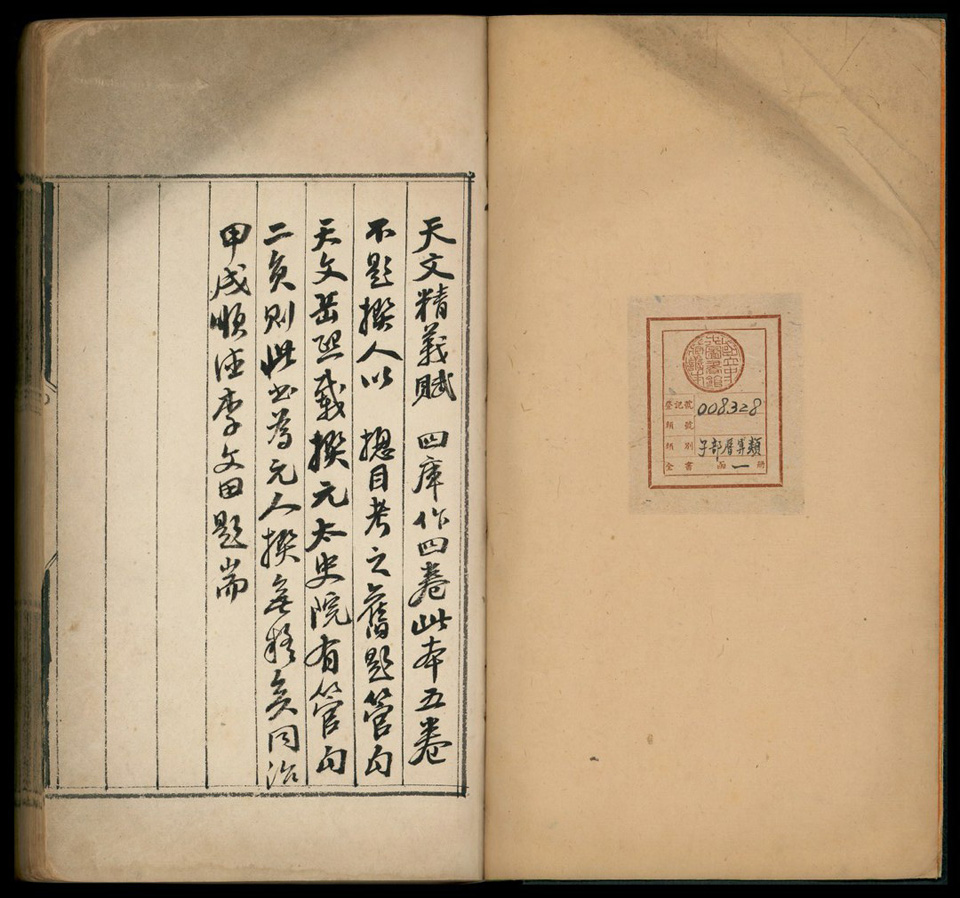 登記號 008328
類號
類別 子部曆算類
全書 函 一 冊
天文精義賦 四庫作四卷此本五卷
不題撰人以 摠目考之舊題管勾
天文岳熙載撰元太史院有管勾
二員則此書為元人撰無疑矣同治
甲戌順德李文田題耑